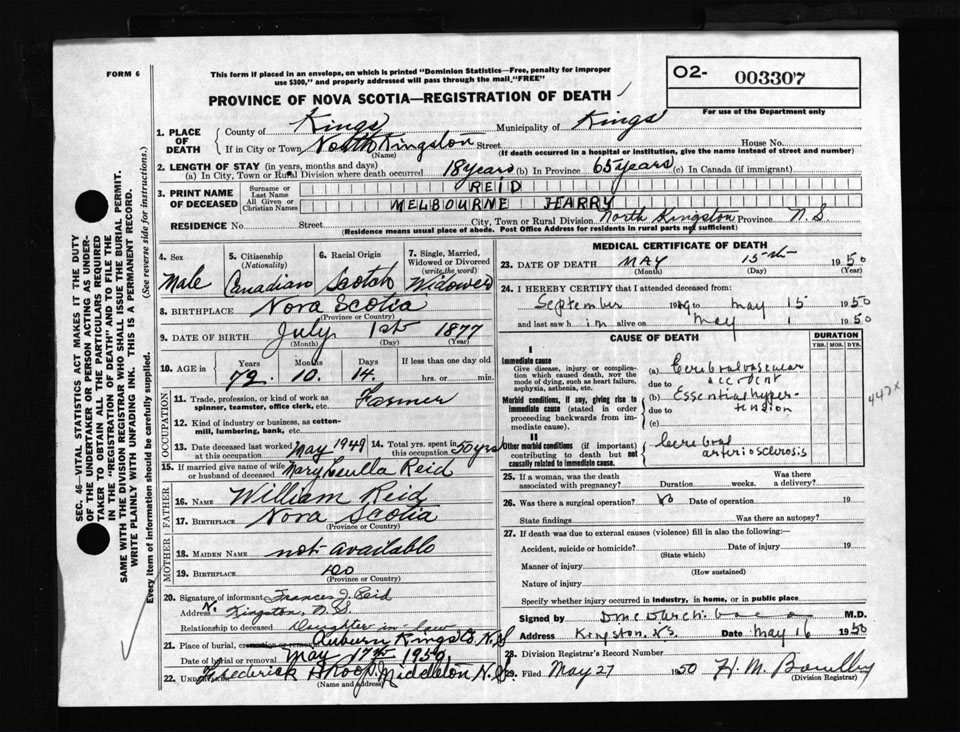 FORM 6
This form if placed in an envelope, on which is printed "Dominion Statistics—Free, penalty for improper
use $300," and properly addressed will pass through the mail "FREE"
02- 003307
For use of the Department only
PROVINCE OF NOVA SCOTIA—REGISTRATION OF DEATH
1. PLACE OF DEATH County of Kings Municipality of Kings
If in City or Town North Kingston Street House No.
(Name) (If death occurred in a hospital or institution, give the name instead of street and number)
2. LENGTH OF STAY (in years, months and days)
(a) In City, Town or Rural Division where death occurred 18 years (b) In Province 65 years (c) In Canada (if immigrant)
3. PRINT NAME OF DECEASED Surname or Last Name REID
All Given or Christian Names MELBOURNE HARRY
RESIDENCE No. Street City, Town or Rural Division North Kingston Province N.S.
(Residence means usual place of abode. Post Office Address for residents in rural parts not sufficient)
4. Sex 5. Citizenship (Nationality) 6. Racial Origin 7. Single, Married, Widowed or Divorced (write the word)
Male Canadian Scotch Widower
8. BIRTHPLACE Nova Scotia
(Province or Country)
9. DATE OF BIRTH July 1st 1877
(Month) (Day) (Year)
10. AGE Years Months Days If less than one day old
72 10 14 hrs. or min.
OCCUPATION
11. Trade, profession, or kind of work as spinner, teamster, office clerk, etc. Farmer
12. Kind of industry or business, as cotton-mill, lumbering, bank, etc.
13. Date deceased last worked at this occupation May 1949 14. Total yrs. spent in this occupation 50 yrs
15. If married give name of wife or husband of deceased Mary Reid
FATHER
16. NAME William Reid
17. BIRTHPLACE Nova Scotia
(Province or Country)
MOTHER
18. MAIDEN NAME not available
19. BIRTHPLACE do
(Province or Country)
20. Signature of informant Frances J. Reid
Address N. Kingston, N.S.
Relationship to deceased Daughter in-law
21. Place of burial, cremation or removal Auburn Kings Co. N.S
Date of burial or removal May 17th 1950
22. UNDERTAKER Frederick A Roop. Middleton N.S.
(Name and address)
MEDICAL CERTIFICATE OF DEATH
23. DATE OF DEATH MAY 15th 1950
(Month) (Day) (Year)
24. I HEREBY CERTIFY that I attended deceased from:
September 19 to May 15 1950
and last saw him alive on May 1 1950
CAUSE OF DEATH DURATION
YRS. MOS. DYS.
I
Immediate cause
Give disease, injury or complication which caused death, not the mode of dying, such as heart failure, asphyxia, asthenia, etc.
(a) Cerebral vascular accident
due to
Morbid conditions, if any, giving rise to immediate cause (stated in order proceeding backwards from immediate cause).
(b) Essential hypertension
due to
(c)
447X
II
Other morbid conditions (if important) contributing to death but not causally related to immediate cause.
Cerebral arteriosclerosis
25. If a woman, was the death associated with pregnancy? Duration weeks. Was there a delivery?
26. Was there a surgical operation? No Date of operation 19
State findings Was there an autopsy?
27. If death was due to external causes (violence) fill in also the following:—
Accident, suicide or homicide? Date of injury 19
(State which)
Manner of injury
(How sustained)
Nature of injury
Specify whether injury occurred in industry, in home, or in public place
Signed by M.D.
Address Kingston N.S. Date May 16 1950
28. Division Registrar's Record Number
29. Filed May 27 1950 H. M. Bowlby
(Division Registrar)
SEC. 46—VITAL STATISTICS ACT MAKES IT THE DUTY
OF THE UNDERTAKER OR PERSON ACTING AS UNDER-
TAKER TO OBTAIN ALL THE PARTICULARS REQUIRED
IN THE "REGISTRATION OF DEATH" AND TO FILE THE
SAME WITH THE DIVISION REGISTRAR WHO SHALL ISSUE THE BURIAL PERMIT.
WRITE PLAINLY WITH UNFADING INK. THIS IS A PERMANENT RECORD.
Every item of information should be carefully supplied. (See reverse side for instructions.)